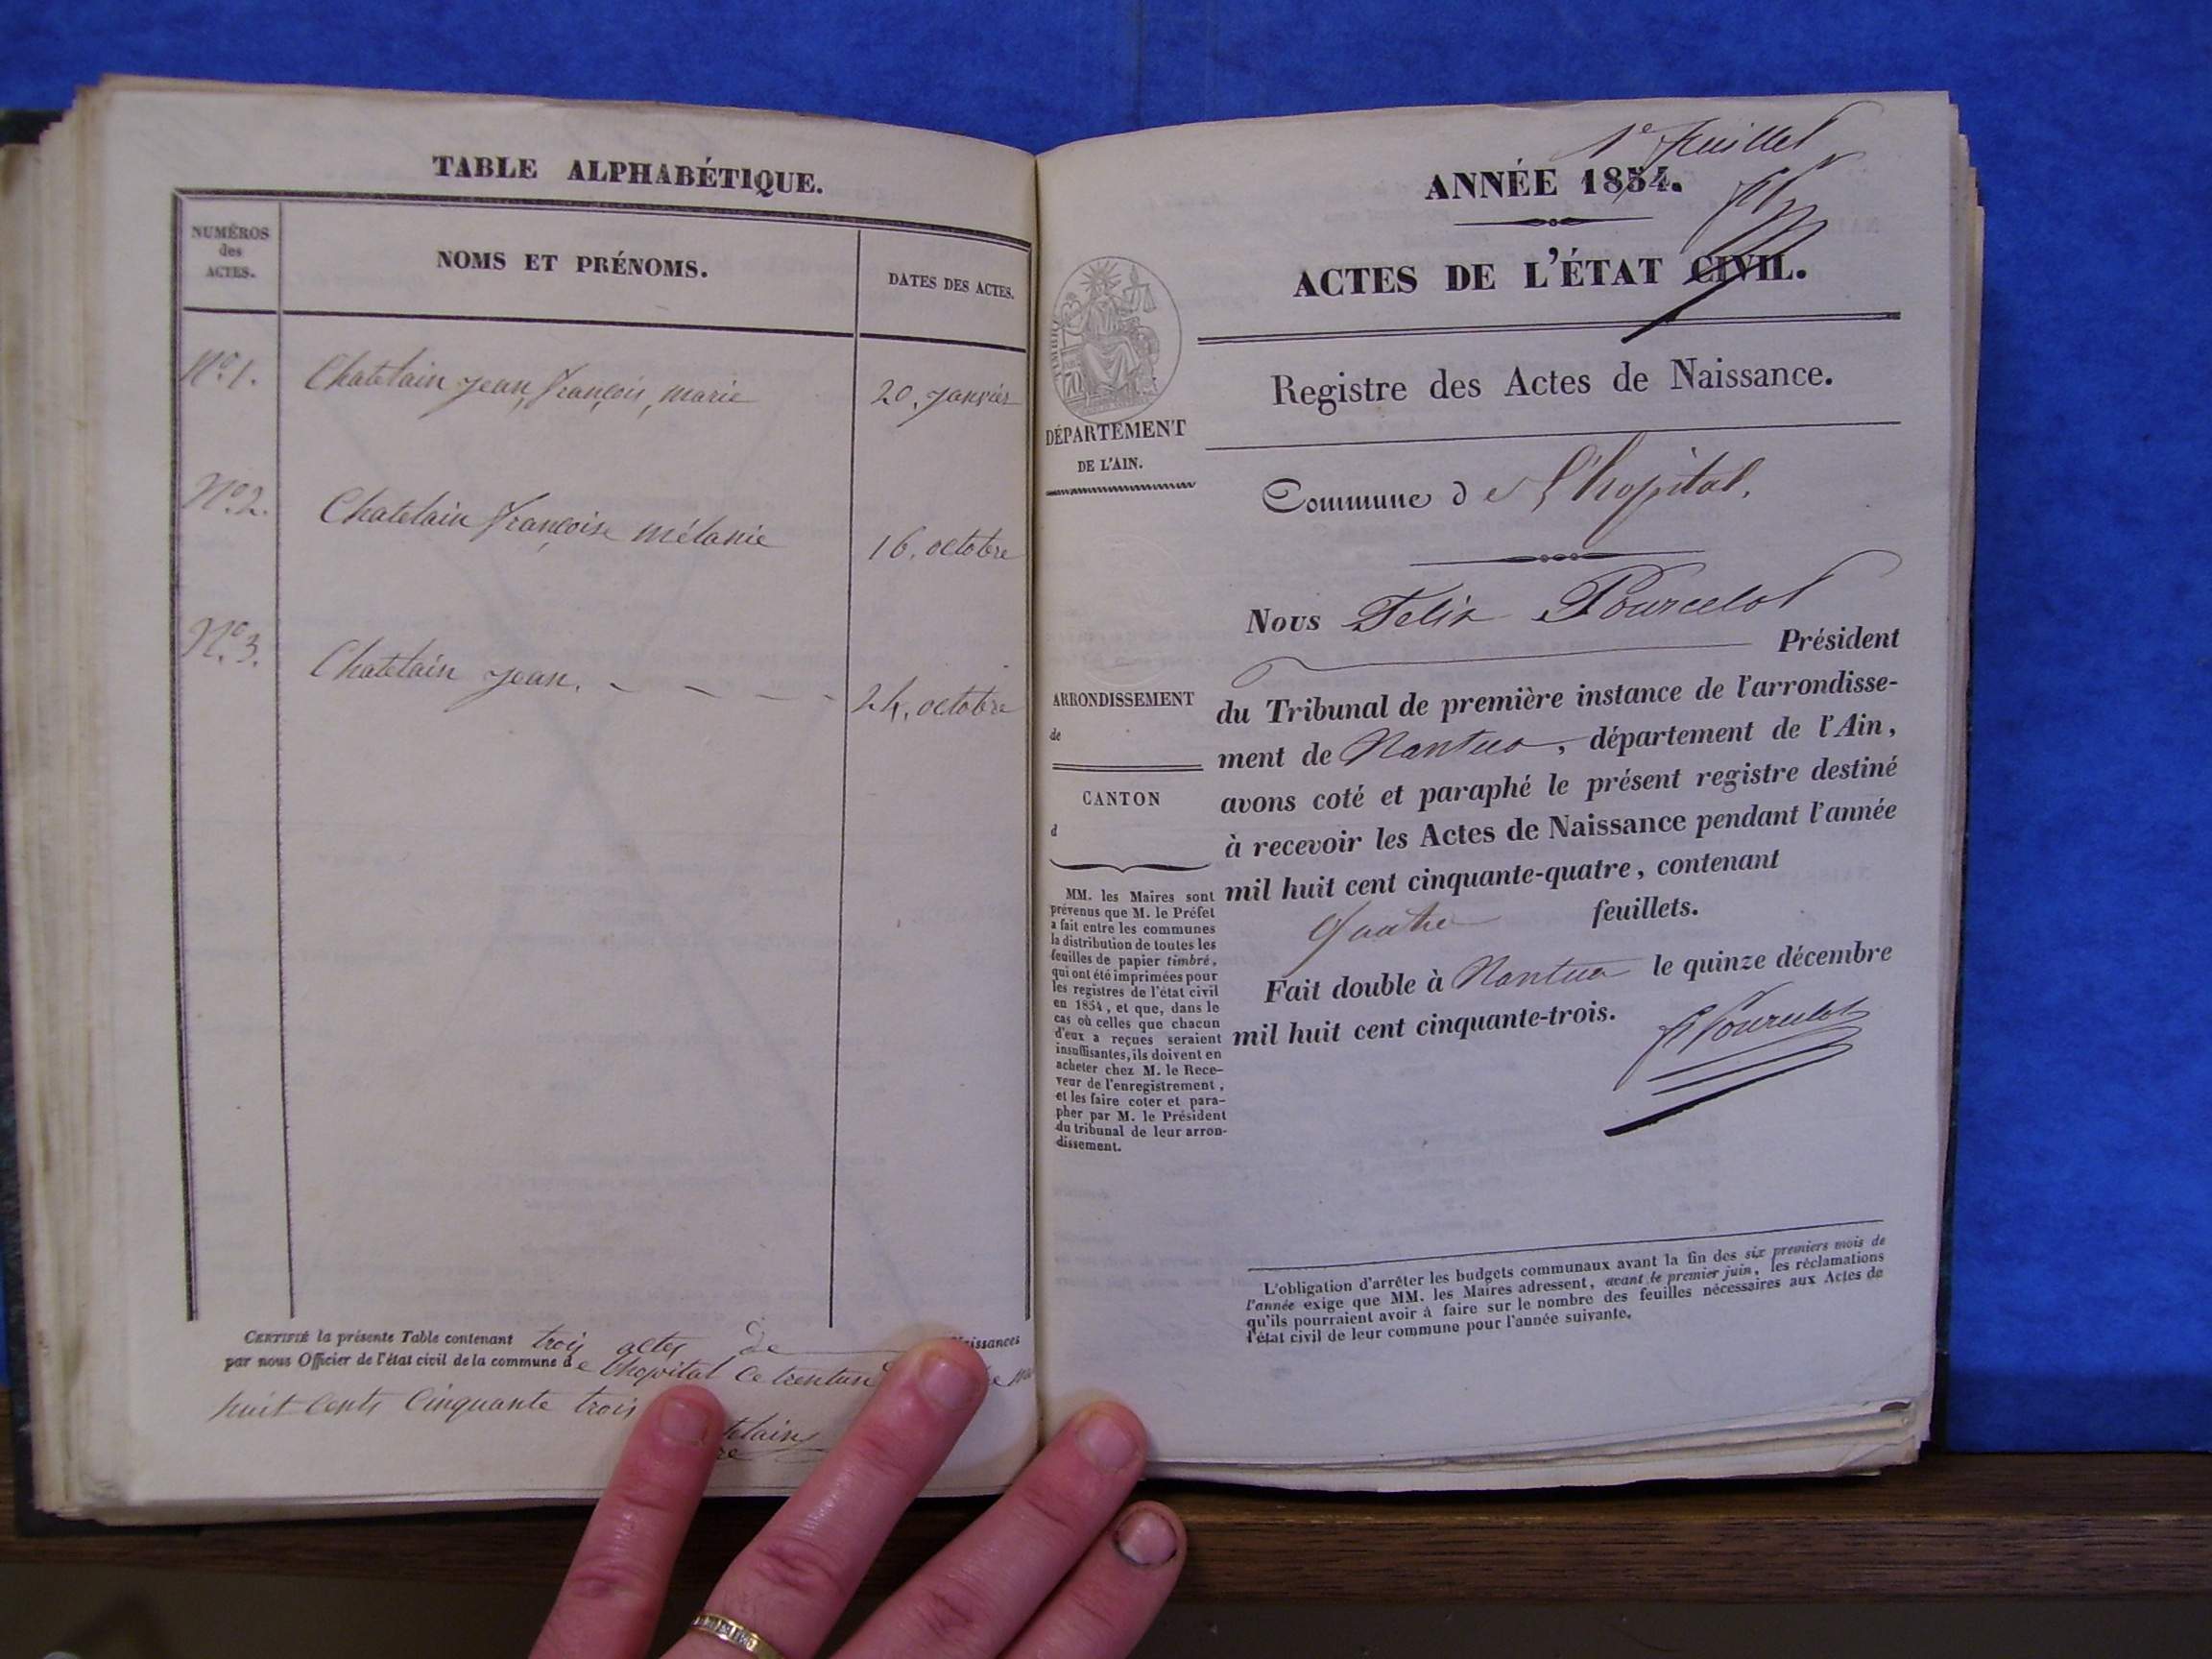 TABLE ALPHABÉTIQUE.
NUMÉROS
des
ACTES.
NOMS ET PRÉNOMS.
DATES DES ACTES.
N.º 1.
Chatelain Jean, françois, marie
20, Janvier
N.º 2.
Chatelain françoise mélanie
16, octobre
N.º 3.
Chatelain Jean.
24, octobre
CERTIFIÉ la présente Table contenant trois actes de Naissances
par nous Officier de l'état civil de la commune de Lhopital ce trentun
huit cents Cinquante trois
1e feuillet
ANNÉE 1854.
ACTES DE L'ÉTAT CIVIL.
TIMBRE
DÉPARTEMENT
DE L'AIN.
Registre des Actes de Naissance.
Commune de L'hopital.
Nous Felix Pourcelot
Président
du Tribunal de première instance de l'arrondisse-
ment de Nantua, département de l'Ain,
avons coté et paraphé le présent registre destiné
à recevoir les Actes de Naissance pendant l'année
mil huit cent cinquante-quatre, contenant
quatre feuillets.
Fait double à Nantua le quinze décembre
mil huit cent cinquante-trois.
F Pourcelot
ARRONDISSEMENT
de
CANTON
d
MM. les Maires sont
prévenus que M. le Préfet
a fait entre les communes
la distribution de toutes les
feuilles de papier timbré,
qui ont été imprimées pour
les registres de l'état civil
en 1854, et que, dans le
cas où celles que chacun
d'eux a reçues seraient
insuffisantes, ils doivent en
acheter chez M. le Rece-
veur de l'enregistrement,
et les faire coter et para-
pher par M. le Président
du tribunal de leur arron-
dissement.
L'obligation d'arrêter les budgets communaux avant la fin des six premiers mois de
l'année exige que MM. les Maires adressent, avant le premier juin, les réclamations
qu'ils pourraient avoir à faire sur le nombre des feuilles nécessaires aux Actes de
l'état civil de leur commune pour l'année suivante.